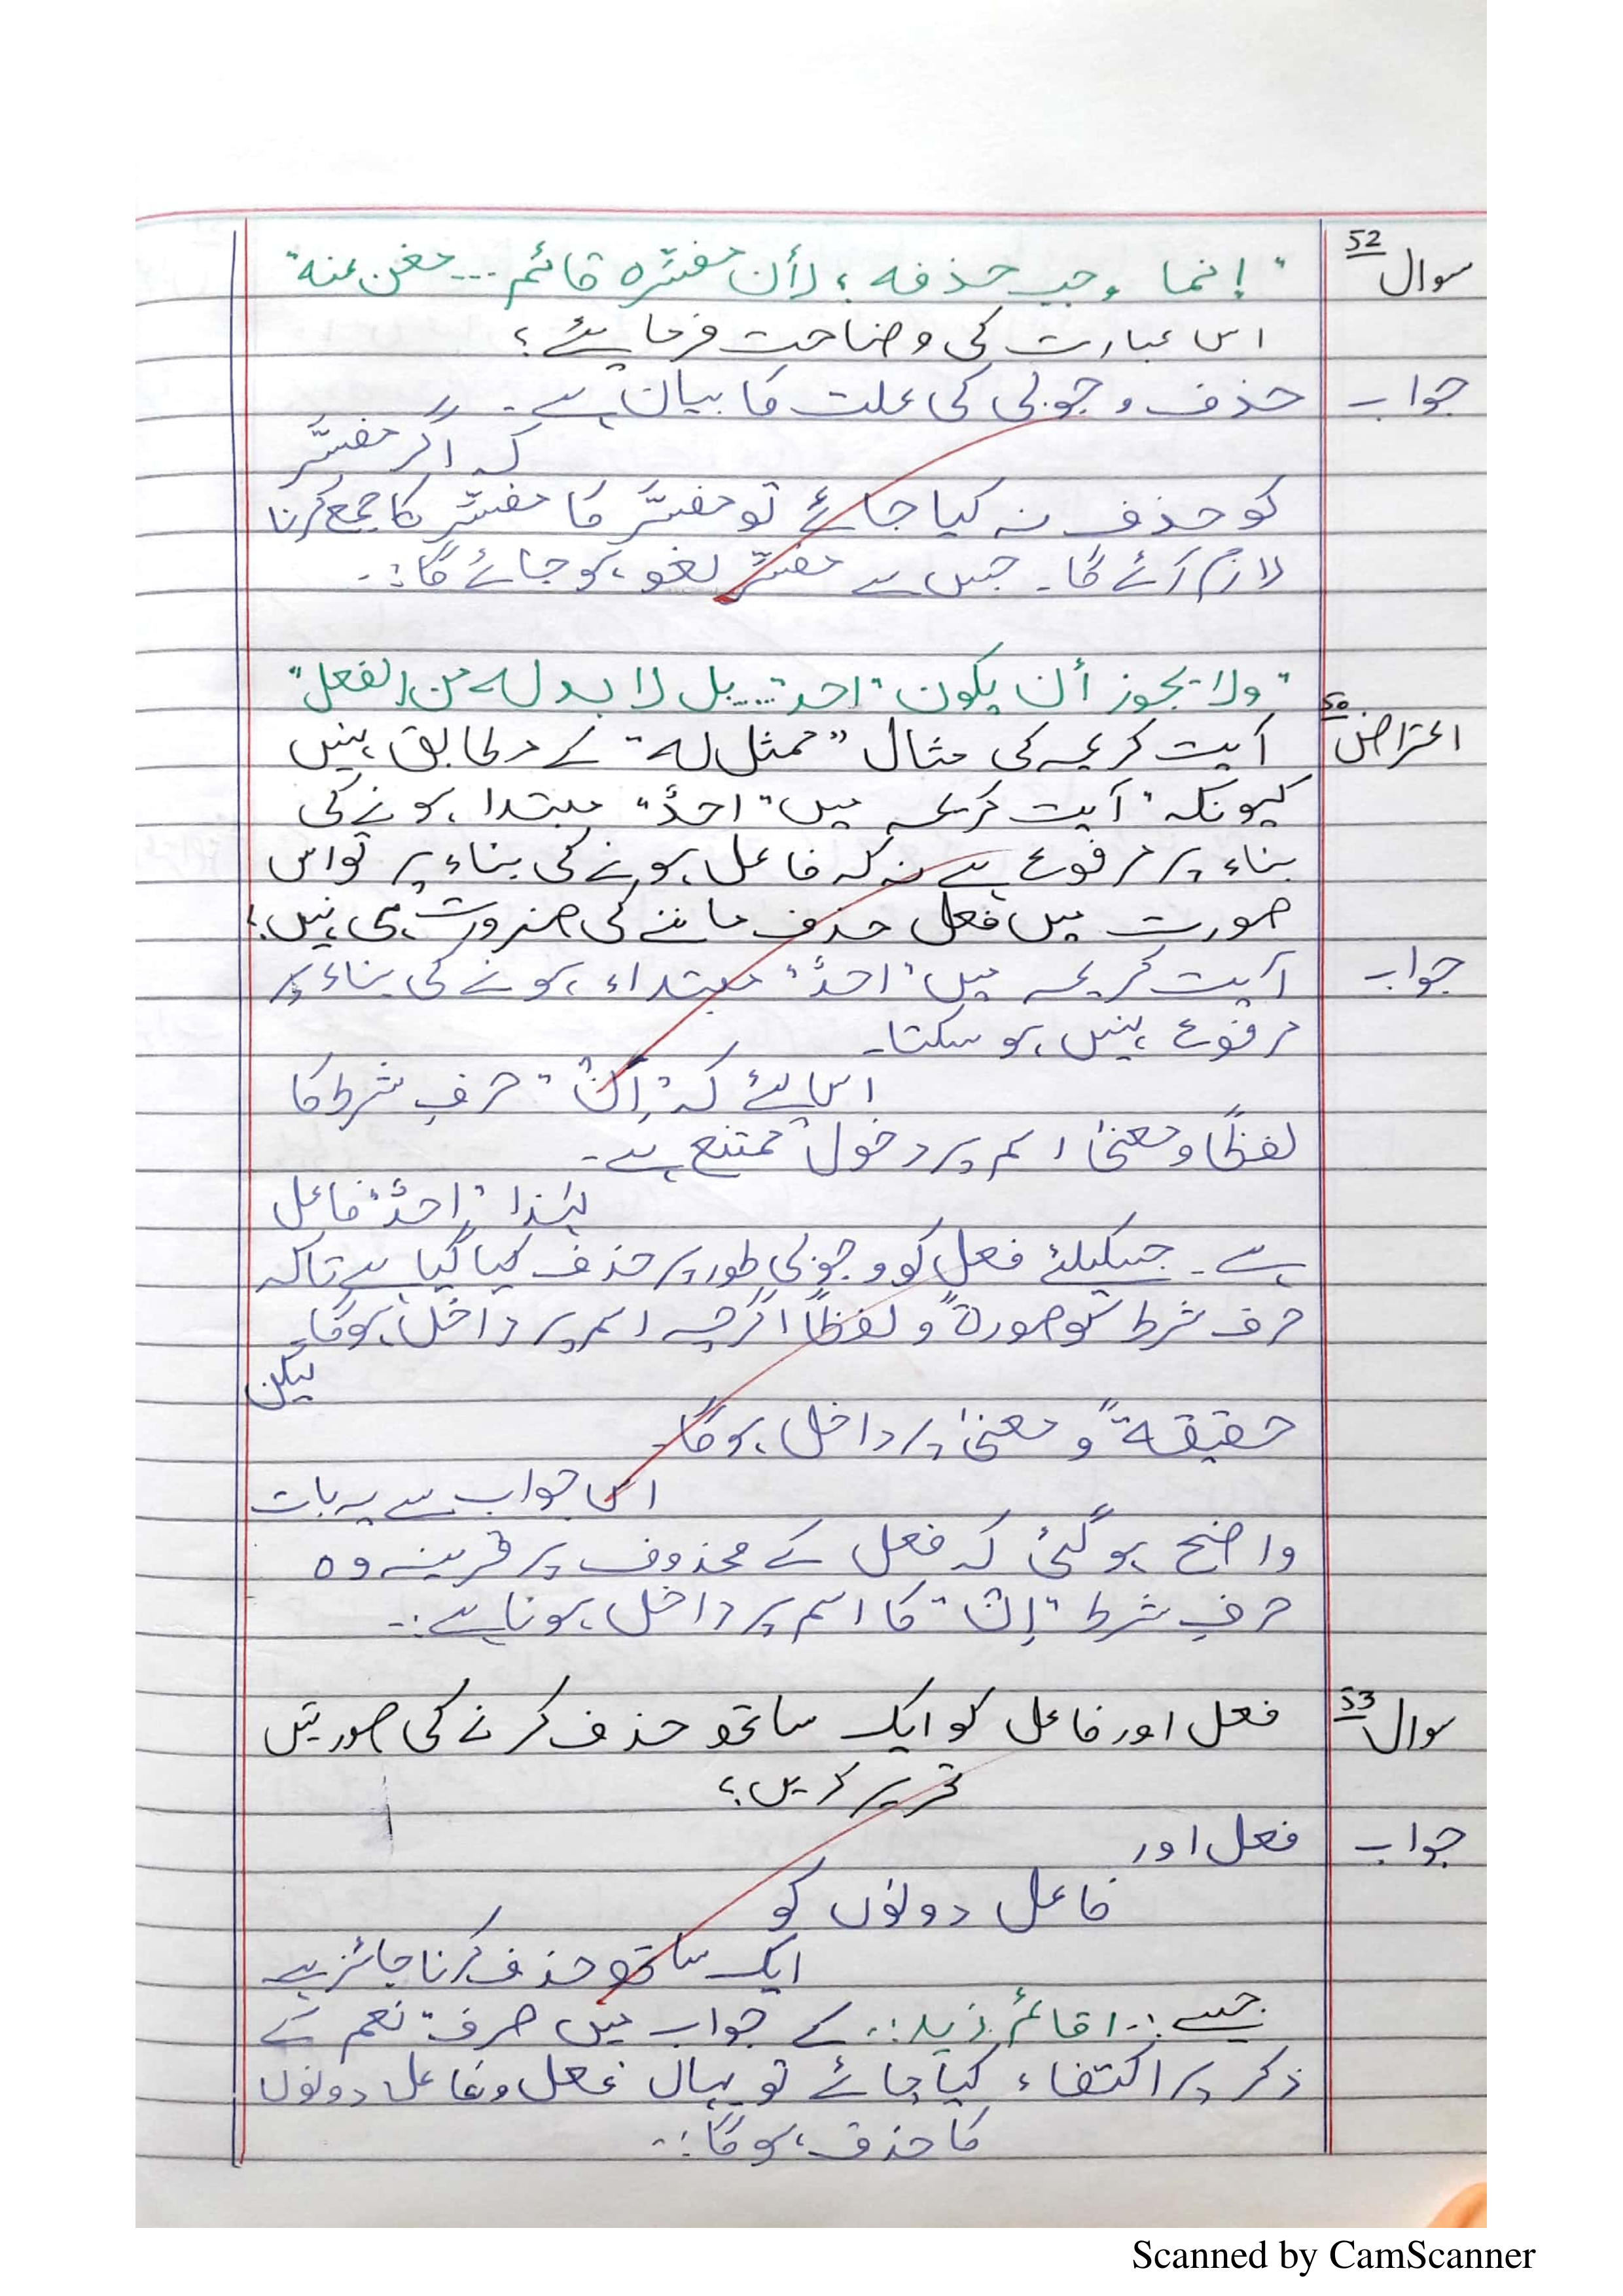 سوال 52 "إنما وجب حذفه؛ لأن مفسّره قائم... مغن عنه"
اس عبارت کی وضاحت فرمایئے؟
جواب حذف وجوبی کی علت کا بیان ہے۔
کہ اگر مفسَّر
کو حذف نہ کیا جائے تو مفسَّر کا مفسِّر کا جمع کرنا
لازم آئے گا۔ جس سے مفسِّر لغو ہو جائے گا:۔
"ولا يجوز أن يكون "احد".... بل لا بد له من الفعل"
اعتراض 50 آیت کریمہ کی مثال "ممثل لہ" کے مطابق نہیں
کیونکہ "آیت کریمہ میں "احدٌ" مبتدا ہونے کی
بناء پر مرفوع ہے نہ کہ فاعل ہونے کی بناء پر تو اس
صورت میں فعل حذف ماننے کی ضرورت ہی نہیں؟
جواب آیت کریمہ میں "احدٌ" مبتداء ہونے کی بناء پر
مرفوع نہیں ہو سکتا۔
اس لئے کہ "إنْ" حرفِ شرط کا
لفظًا و معنیٰ اسم پر دخول ممتنع ہے۔
لہٰذا "احدٌ" فاعل
ہے۔ جسکیلئے فعل کو وجوبی طور پر حذف کیا گیا ہے تاکہ
حرف شرط کو صورۃً و لفظًا اگرچہ اسم پر داخل ہوگا۔
لیکن
حقیقۃً و معنیٰ پر داخل ہوگا۔
اس جواب سے یہ بات
واضح ہو گئی کہ فعل کے محذوف پر قرینہ وہ
حرفِ شرط "إنْ" کا اسم پر داخل ہونا ہے:۔
سوال 53 فعل اور فاعل کو ایک ساتھ حذف کرنے کی صورتیں
تحریر کریں؟
جواب فعل اور
فاعل دونوں کو
ایک ساتھ حذف کرنا جائز ہے
جیسے:۔ اقائمٌ زید:۔ کے جواب میں صرف "نعم کے
ذکر پر اکتفاء کیا جائے تو یہاں فعل و فاعل دونوں
کا حذف ہوگا:۔
Scanned by CamScanner